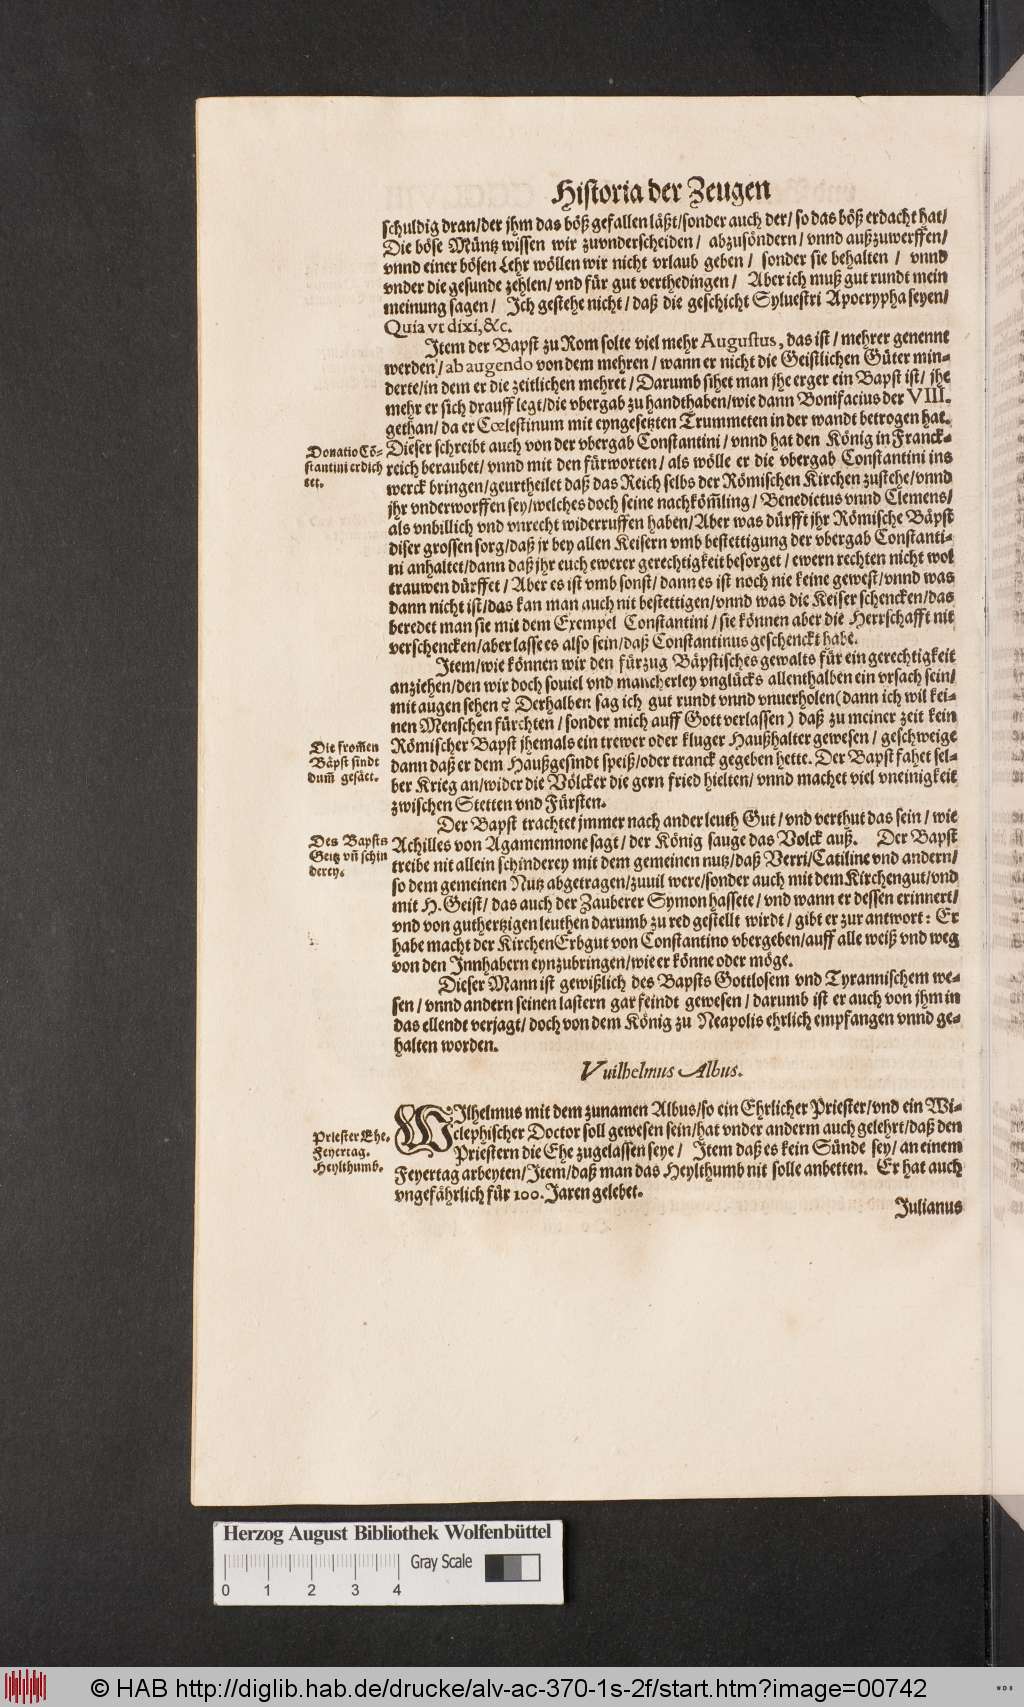 Historia der Zeugen
schuldig dran/der jhm das böß gefallen läßt/sonder auch der/ so das böß erdacht hat/
Die böse Müntz wissen wir zuvnderscheiden / abzusöndern / vnnd außzuwerffen/
vnnd einer bösen Lehr wöllen wir nicht vrlaub geben / sonder sie behalten / vnnd
vnder die gesunde zehlen/ vnd für gut verthedingen / Aber ich muß gut rundt mein
meinung sagen / Ich gestehe nicht / daß die geschicht Syluestri Apocrypha seyen/
Quia vt dixi, &c.
Item der Bapst zu Rom solte viel mehr Augustus, das ist / mehrer genennt
werden / ab augendo von dem mehren / wann er nicht die Geistlichen Güter min-
derte/in dem er die zeitlichen mehret / Darumb sihet man jhe erger ein Bapst ist / jhe
mehr er sich drauff legt/die vbergab zu handthaben/wie dann Bonifacius der VIII.
gethan / da er Cœlestinum mit eyngesetzten Trummeten in der wandt betrogen hat.
Donatio Cō-
stantini erdich
tet.
Dieser schreibt auch von der vbergab Constantini / vnnd hat den König in Franck-
reich beraubet/ vnnd mit den fürworten / als wölle er die vbergab Constantini ins
werck bringen/geurtheilet daß das Reich selbs der Römischen Kirchen zustehe/vnnd
jhr vnderworffen sey/welches doch seine nachkom̃ling / Benedictus vnnd Clemens/
als vnbillich vnd vnrecht widerruffen haben/Aber was dürfft jhr Römische Bäpst
diser grossen sorg/daß jr bey allen Keisern vmb bestettigung der vbergab Constanti-
ni anhaltet/dann daß jhr euch ewerer gerechtigkeit besorget / ewern rechten nicht wol
trauwen dürffet / Aber es ist vmb sonst / dann es ist noch nie keine gewest/vnnd was
dann nicht ist/das kan man auch nit bestettigen/vnnd was die Keiser schencken/das
beredet man sie mit dem Exempel Constantini / sie können aber die Herrschafft nit
verschencken/aber lasse es also sein/daß Constantinus geschenckt habe.
Item/wie können wir den fürzug Bäpstisches gewalts für ein gerechtigkeit
anziehen/den wir doch souiel vnd mancherley vnglücks allenthalben ein vrsach sein/
mit augen sehen? Derhalben sag ich gut rundt vnnd vnuerholen (dann ich wil kei-
nen Menschen fürchten / sonder mich auff Gott verlassen) daß zu meiner zeit kein
Die from̃en
Bäpst sindt
dum̃ gesäet.
Römischer Bapst jhemals ein trewer oder kluger Haußhalter gewesen / geschweige
dann daß er dem Haußgesindt speiß/oder tranck gegeben hette. Der Bapst fahet sel-
ber Krieg an/wider die Völcker die gern fried hielten / vnnd machet viel vneinigkeit
zwischen Stetten vnd Fürsten.
Der Bapst trachtet jmmer nach ander leuth Gut / vnd verthut das sein / wie
Des Bapsts
Geitz vn̄ schin
derey.
Achilles von Agamemnone sagt / der König sauge das Volck auß. Der Bapst
treibe nit allein schinderey mit dem gemeinen nutz/daß Verri/Catiline vnd andern/
so dem gemeinen Nutz abgetragen/zuuil were/sonder auch mit dem Kirchengut/vnd
mit H. Geist/ das auch der Zauberer Symon hassete / vnd wann er dessen erinnert/
vnd von guthertzigen leuthen darumb zu red gestellt wirdt / gibt er zur antwort: Er
habe macht der Kirchen Erbgut von Constantino vbergeben/auff alle weiß vnd weg
von den Innhabern eynzubringen/wie er könne oder möge.
Dieser Mann ist gewißlich des Bapsts Gottlosem vnd Tyrannischem we-
sen / vnnd andern seinen lastern gar feindt gewesen / darumb ist er auch von jhm in
das ellendt verjagt/ doch von dem König zu Neapolis ehrlich empfangen vnnd ge-
halten worden.
Vuilhelmus Albus.
Priester Ehe.
Feyertag.
Heylthumb.
WIlhelmus mit dem zunamen Albus/so ein Ehrlicher Priester/vnd ein Wi-
clephischer Doctor soll gewesen sein/hat vnder anderm auch gelehrt/daß den
Priestern die Ehe zugelassen seye / Item daß es kein Sünde sey / an einem
Feyertag arbeyten/Item/daß man das Heylthumb nit solle anbetten. Er hat auch
vngefährlich für 100. Jaren gelebet.
Julianus
Herzog August Bibliothek Wolfenbüttel
Gray Scale
0 1 2 3 4
© HAB http://diglib.hab.de/drucke/alv-ac-370-1s-2f/start.htm?image=00742